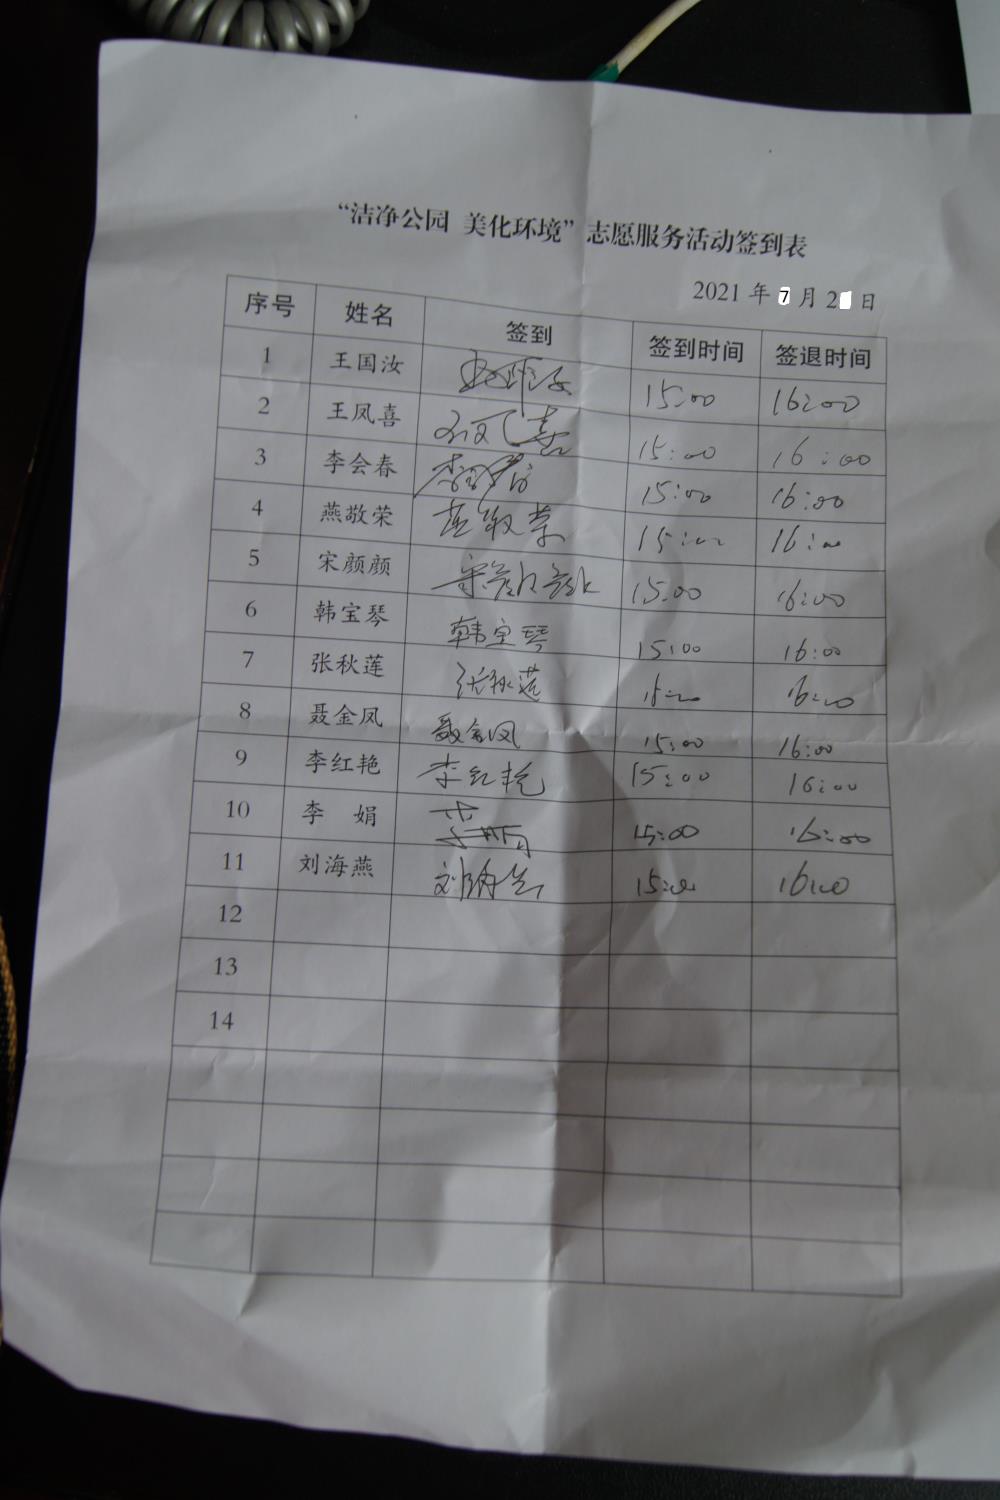 “洁净公园 美化环境”志愿服务活动签到表
2021 年 7 月 2 日
序号 姓名 签到 签到时间 签退时间
1 王国汝 15:00 16:00
2 王凤喜 王凤喜 15:00 16:00
3 李会春 李会春 15:00 16:00
4 燕敬荣 燕敬荣 15:00 16:00
5 宋颜颜 宋颜颜 15:00 16:00
6 韩宝琴 韩宝琴 15:00 16:00
7 张秋莲 张秋莲 15:00 16:00
8 聂金凤 聂金凤 15:00 16:00
9 李红艳 李红艳 15:00 16:00
10 李 娟 李娟 15:00 16:00
11 刘海燕 刘海燕 15:00 16:00
12
13
14